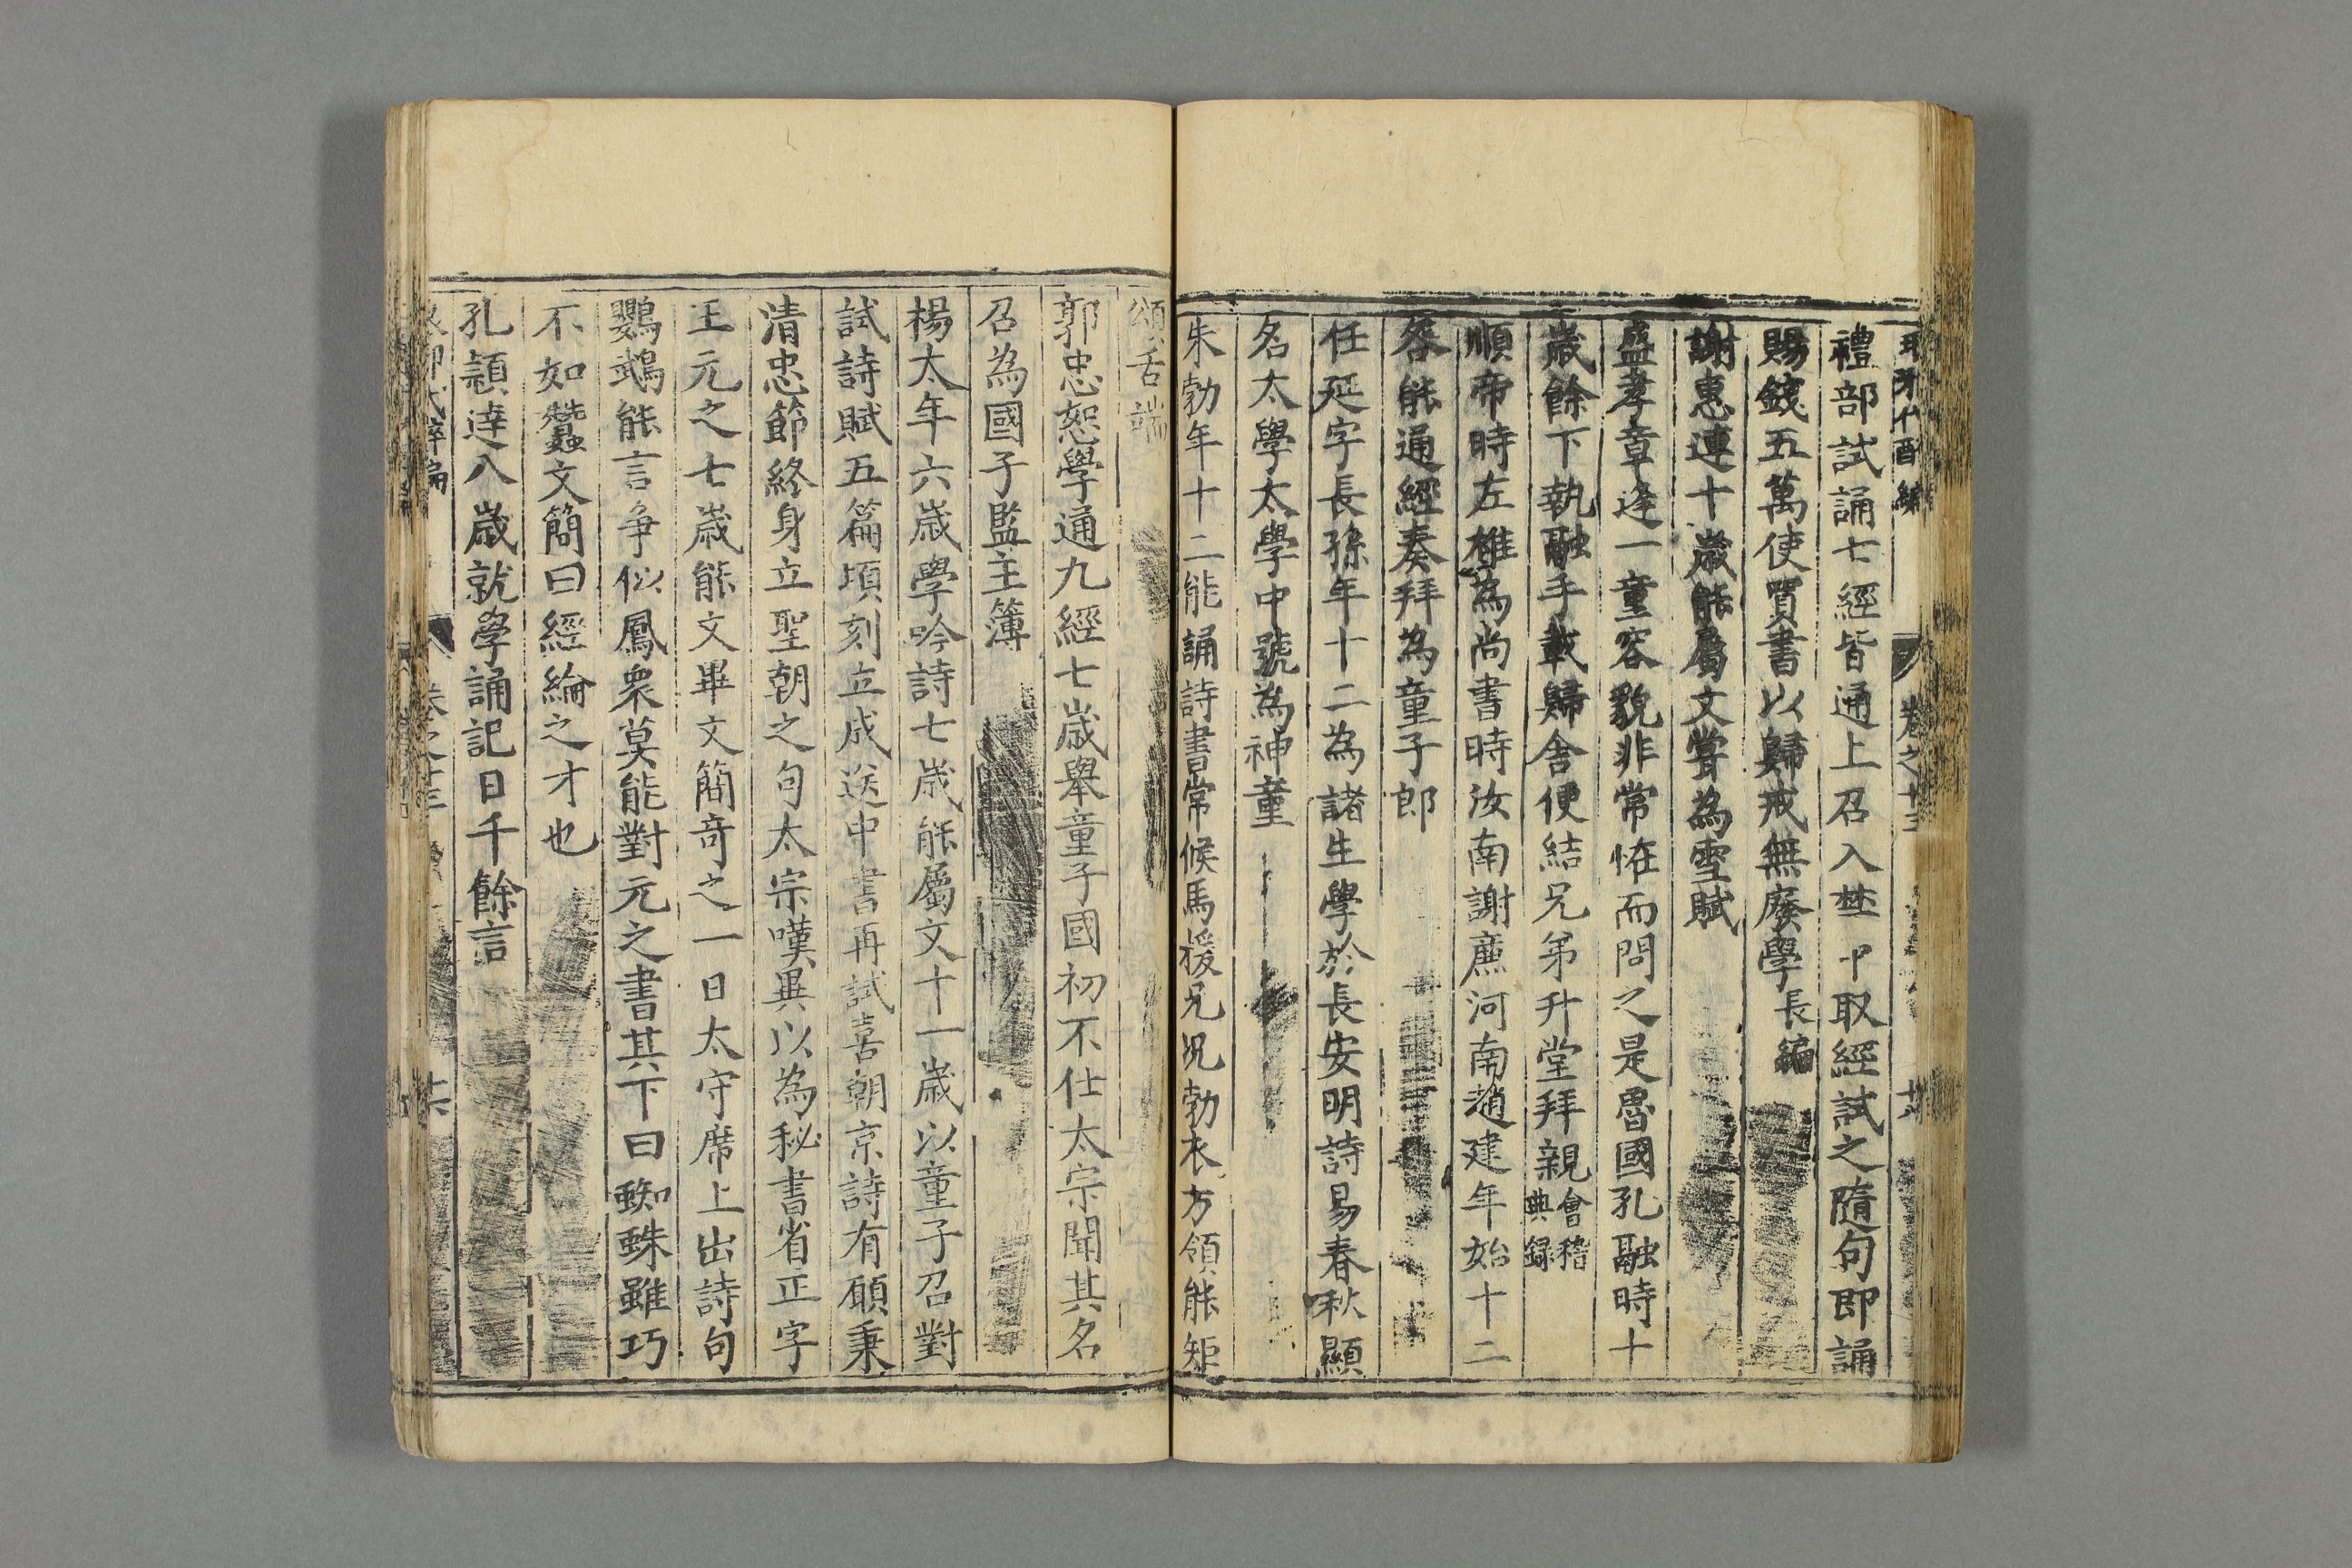 禮部試誦七經皆通上召入禁中取經試之隨句即誦
賜錢五萬使買書以歸戒無廢學長編
謝惠連十歲能屬文嘗為雪賦
盛孝章逢一童容貌非常怪而問之是魯國孔融時十
歲餘下執融手載歸舍便結兄弟升堂拜親會稽典録
順帝時左雄為尚書時汝南謝廉河南趙建年始十二
各能通經奏拜為童子郎
任延字長孫年十二為諸生學於長安明詩易春秋顯
名太學太學中號為神童
朱勃年十二能誦詩書常候馬援兄况勃衣方領能矩
頌舌端
郭忠恕學通九經七歲舉童子國初不仕太宗聞其名
召為國子監主簿
楊太年六歲學吟詩七歲能屬文十一歲以童子召對
試詩賦五篇頃刻立成送中書再試喜朝京詩有願秉
清忠節終身立聖朝之句太宗嘆異以為秘書省正字
王元之七歲能文畢文簡奇之一日太守席上出詩句
鸚鵡能言爭似鳳衆莫能對元之書其下曰蜘蛛雖巧
不如蠶文簡曰經綸之才也
孔穎達八歲就學誦記日千餘言